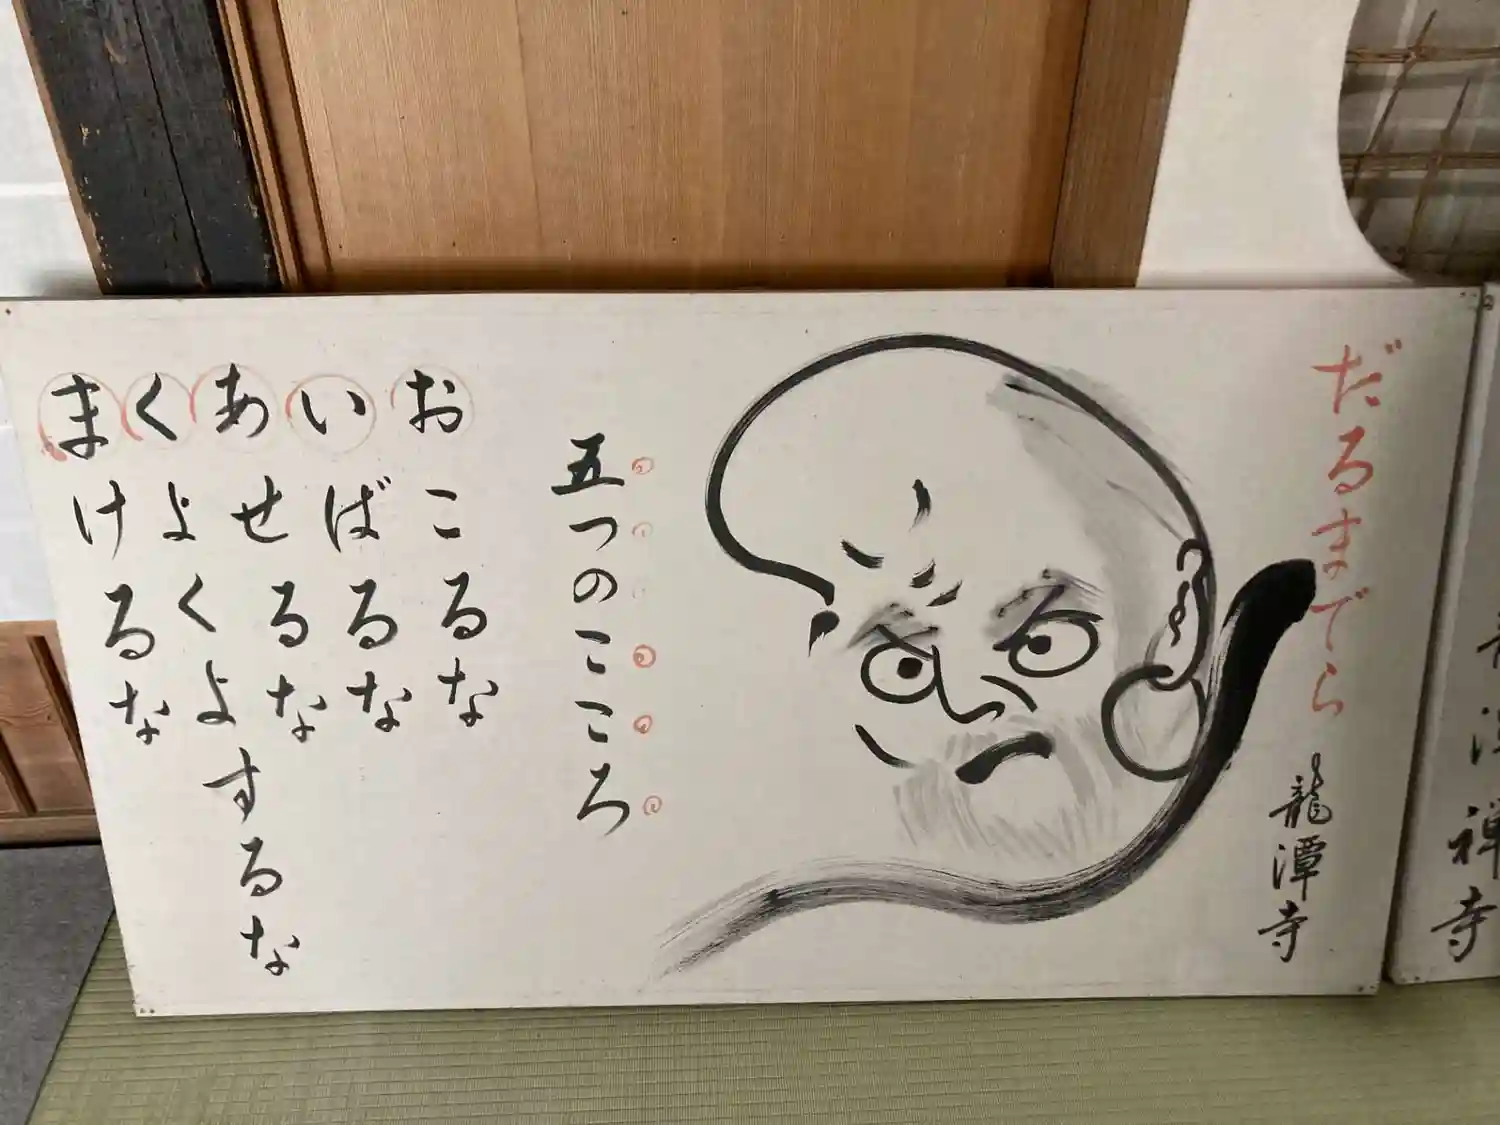 だるまでら
龍潭寺
五つのこころ
おこるな
いばるな
あせるな
くよくよするな
まけるな
潭禅寺